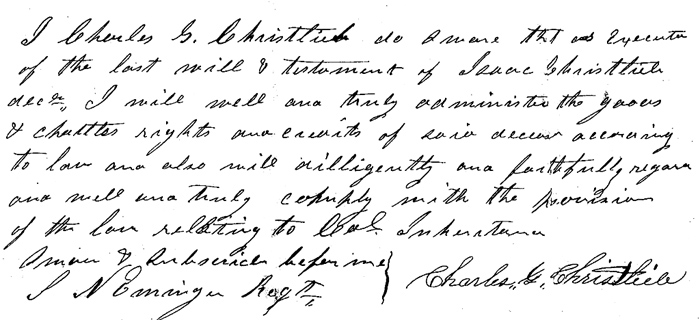 I Charles G. Christlieb do swear that as Executor
of the last will & testament of Isaac Christlieb
decd, I will well and truly administer the goods
& chattles rights and credits of said deceased according
to law and also will dilligently and faithfully regard
and well and truly comply with the provision
of the law relating to Col. Inheritance
Sworn & Subscribed before me
J N Eminger Regtr
Charles, G, Christlieb